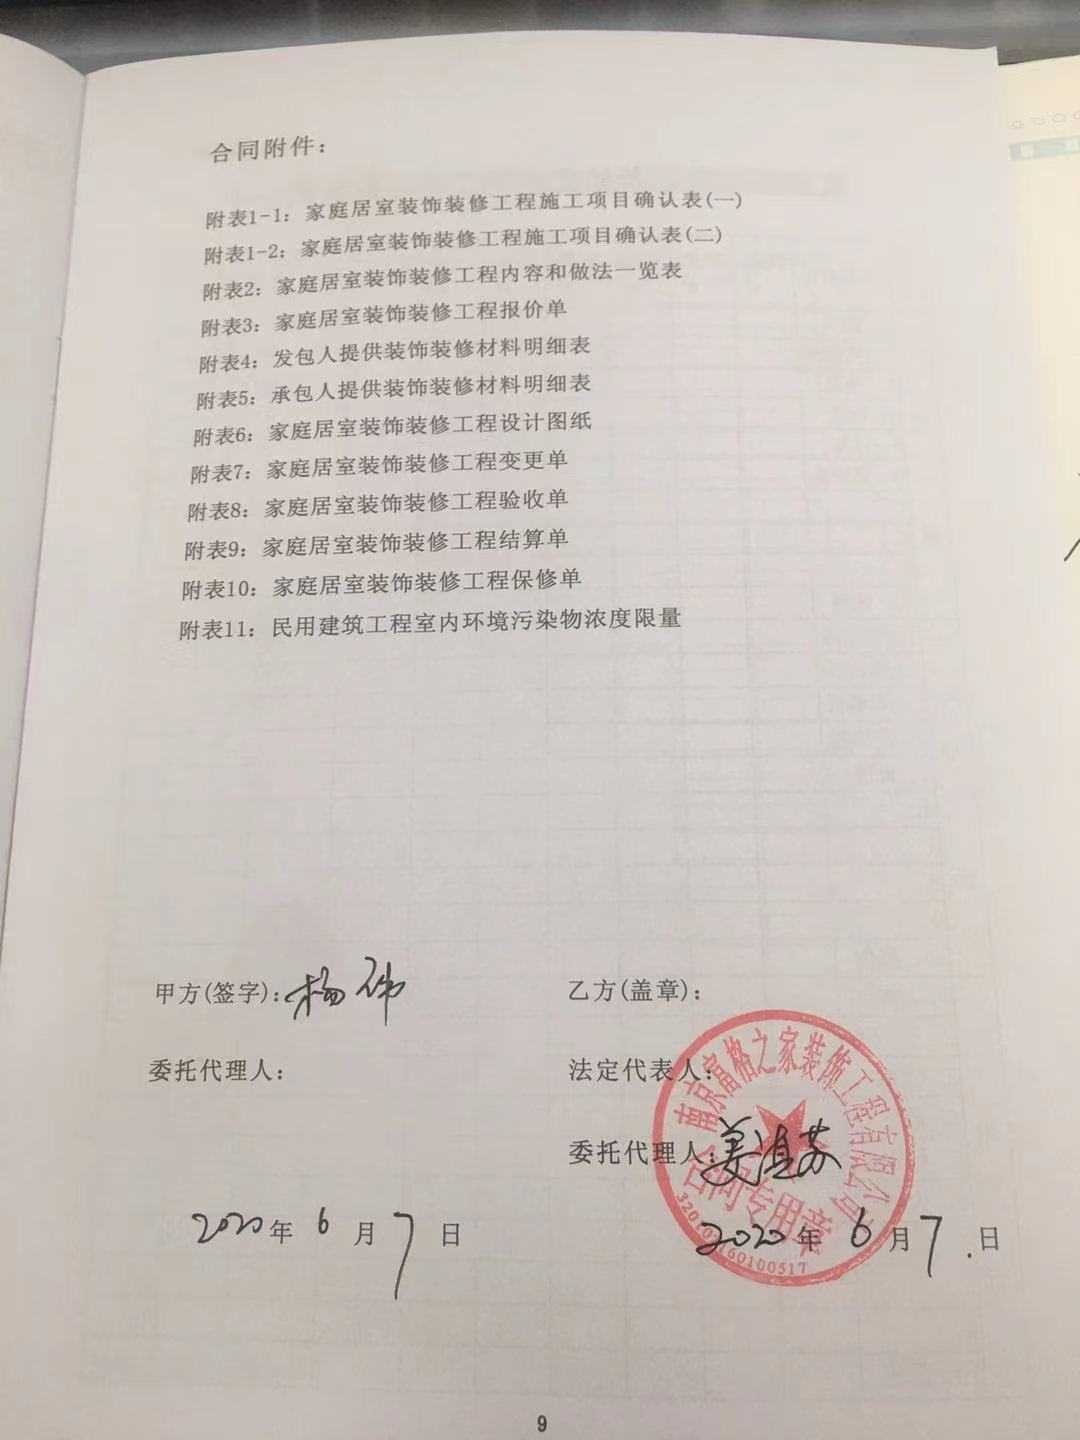 合同附件：
附表1-1：家庭居室装饰装修工程施工项目确认表(一)
附表1-2：家庭居室装饰装修工程施工项目确认表(二)
附表2：家庭居室装饰装修工程内容和做法一览表
附表3：家庭居室装饰装修工程报价单
附表4：发包人提供装饰装修材料明细表
附表5：承包人提供装饰装修材料明细表
附表6：家庭居室装饰装修工程设计图纸
附表7：家庭居室装饰装修工程变更单
附表8：家庭居室装饰装修工程验收单
附表9：家庭居室装饰装修工程结算单
附表10：家庭居室装饰装修工程保修单
附表11：民用建筑工程室内环境污染物浓度限量
甲方(签字)：杨伟
乙方(盖章)：
委托代理人：
法定代表人：
委托代理人：姜苏
南京富格之家装饰工程有限公司
合同专用章
2020年6月7日
2020年6月7日
9